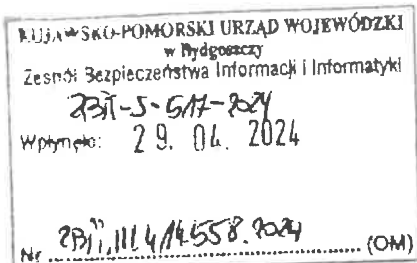 KUJAWSKO-POMORSKI URZĄD WOJEWÓDZKI
w Bydgoszczy
Zespół Bezpieczeństwa Informacji i Informatyki
ZBiI-S-517-2024
Wpłynęło: 29. 04. 2024
Nr ........ (OM)